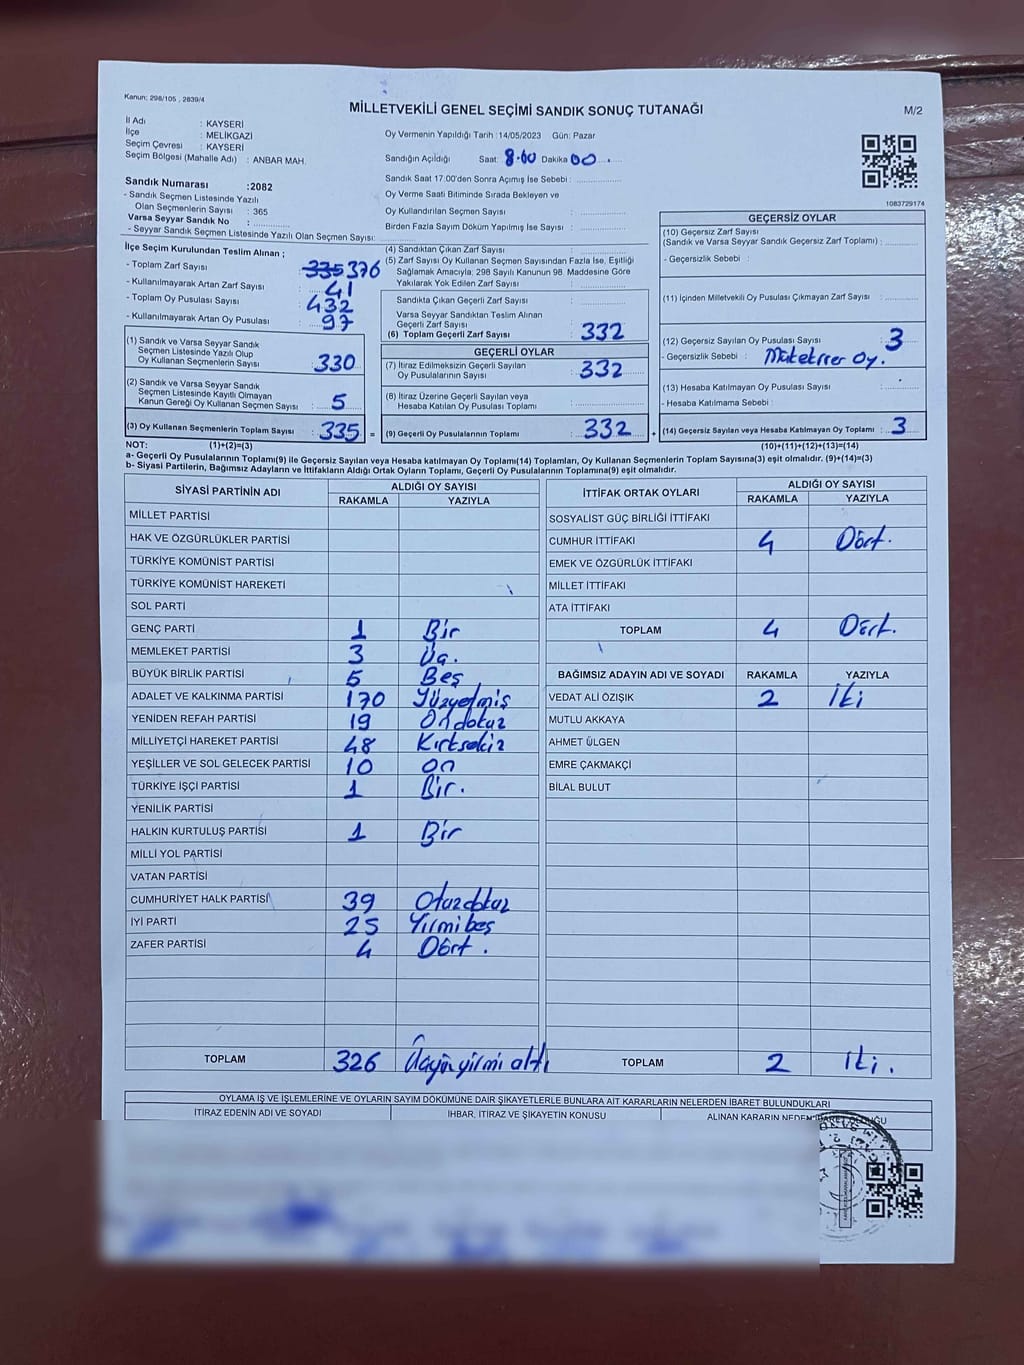 Kanun: 298/105 , 2839/4
MİLLETVEKİLİ GENEL SEÇİMİ SANDIK SONUÇ TUTANAĞI
M/2
İl Adı : KAYSERİ
İlçe : MELİKGAZİ
Seçim Çevresi : KAYSERİ
Seçim Bölgesi (Mahalle Adı) : ANBAR MAH.
Oy Vermenin Yapıldığı Tarih :14/05/2023 Gün: Pazar
Sandığın Açıldığı Saat: 8.00 Dakika 00
Sandık Saat 17:00'den Sonra Açımış İse Sebebi :
Oy Verme Saati Bitiminde Sırada Bekleyen ve
Oy Kullandırılan Seçmen Sayısı :
Birden Fazla Sayım Döküm Yapılmış İse Sayısı :
1083729174
Sandık Numarası :2082
- Sandık Seçmen Listesinde Yazılı
Olan Seçmenlerin Sayısı : 365
Varsa Seyyar Sandık No :
- Seyyar Sandık Seçmen Listesinde Yazılı Olan Seçmen Sayısı:
İlçe Seçim Kurulundan Teslim Alınan ;
- Toplam Zarf Sayısı : 335 376
- Kullanılmayarak Artan Zarf Sayısı : 41
- Toplam Oy Pusulası Sayısı : 432
- Kullanılmayarak Artan Oy Pusulası : 97
(1) Sandık ve Varsa Seyyar Sandık
Seçmen Listesinde Yazılı Olup
Oy Kullanan Seçmenlerin Sayısı : 330
(2) Sandık ve Varsa Seyyar Sandık
Seçmen Listesinde Kayıtlı Olmayan
Kanun Gereği Oy Kullanan Seçmen Sayısı : 5
(3) Oy Kullanan Seçmenlerin Toplam Sayısı : 335 =
(4) Sandıktan Çıkan Zarf Sayısı :
(5) Zarf Sayısı Oy Kullanan Seçmen Sayısından Fazla İse, Eşitliği
Sağlamak Amacıyla; 298 Sayılı Kanunun 98. Maddesine Göre
Yakılarak Yok Edilen Zarf Sayısı :
Sandıkta Çıkan Geçerli Zarf Sayısı :
Varsa Seyyar Sandıktan Teslim Alınan
Geçerli Zarf Sayısı :
(6) Toplam Geçerli Zarf Sayısı : 332
GEÇERLİ OYLAR
(7) İtiraz Edilmeksizin Geçerli Sayılan
Oy Pusulalarının Sayısı : 332
(8) İtiraz Üzerine Geçerli Sayılan veya
Hesaba Katılan Oy Pusulası Toplamı :
(9) Geçerli Oy Pusulalarının Toplamı : 332 +
GEÇERSİZ OYLAR
(10) Geçersiz Zarf Sayısı
(Sandık ve Varsa Seyyar Sandık Geçersiz Zarf Toplamı) :
- Geçersizlik Sebebi :
(11) İçinden Milletvekili Oy Pusulası Çıkmayan Zarf Sayısı :
(12) Geçersiz Sayılan Oy Pusulası Sayısı : 3
- Geçersizlik Sebebi : Oy.
(13) Hesaba Katılmayan Oy Pusulası Sayısı :
- Hesaba Katılmama Sebebi :
(14) Geçersiz Sayılan veya Hesaba Katılmayan Oy Toplamı : 3
NOT: (1)+(2)=(3) (10)+(11)+(12)+(13)=(14)
a- Geçerli Oy Pusulalarının Toplamı(9) ile Geçersiz Sayılan veya Hesaba katılmayan Oy Toplamı(14) Toplamları, Oy Kullanan Seçmenlerin Toplam Sayısına(3) eşit olmalıdır. (9)+(14)=(3)
b- Siyasi Partilerin, Bağımsız Adayların ve İttifakların Aldığı Ortak Oyların Toplamı, Geçerli Oy Pusulalarının Toplamına(9) eşit olmalıdır.
SİYASİ PARTİNİN ADI ALDIĞI OY SAYISI
RAKAMLA YAZIYLA
MİLLET PARTİSİ
HAK VE ÖZGÜRLÜKLER PARTİSİ
TÜRKİYE KOMÜNİST PARTİSİ
TÜRKİYE KOMÜNİST HAREKETİ
SOL PARTİ
GENÇ PARTİ 1 Bir
MEMLEKET PARTİSİ 3 Üç.
BÜYÜK BİRLİK PARTİSİ 5 Beş
ADALET VE KALKINMA PARTİSİ 170 Yüzyetmiş
YENİDEN REFAH PARTİSİ 19 Ondokuz
MİLLİYETÇİ HAREKET PARTİSİ 48 Kırksekiz
YEŞİLLER VE SOL GELECEK PARTİSİ 10 on
TÜRKİYE İŞÇİ PARTİSİ 1 Bir.
YENİLİK PARTİSİ
HALKIN KURTULUŞ PARTİSİ 1 Bir
MİLLİ YOL PARTİSİ
VATAN PARTİSİ
CUMHURİYET HALK PARTİSİ 39 Otuzdokuz
İYİ PARTİ 25 Yirmibeş
ZAFER PARTİSİ 4 Dört.
TOPLAM 326 Üçyüzyirmi altı
İTTİFAK ORTAK OYLARI ALDIĞI OY SAYISI
RAKAMLA YAZIYLA
SOSYALİST GÜÇ BİRLİĞİ İTTİFAKI
CUMHUR İTTİFAKI 4 Dört.
EMEK VE ÖZGÜRLÜK İTTİFAKI
MİLLET İTTİFAKI
ATA İTTİFAKI
TOPLAM 4 Dört.
BAĞIMSIZ ADAYIN ADI VE SOYADI RAKAMLA YAZIYLA
VEDAT ALİ ÖZIŞIK 2 İki
MUTLU AKKAYA
AHMET ÜLGEN
EMRE ÇAKMAKÇİ
BİLAL BULUT
TOPLAM 2 iki.
OYLAMA İŞ VE İŞLEMLERİNE VE OYLARIN SAYIM DÖKÜMÜNE DAİR ŞİKAYETLERLE BUNLARA AİT KARARLARIN NELERDEN İBARET BULUNDUKLARI
İTİRAZ EDENİN ADI VE SOYADI İHBAR, İTİRAZ VE ŞİKAYETİN KONUSU ALINAN KARARIN NEDEN İBARET OLDUĞU